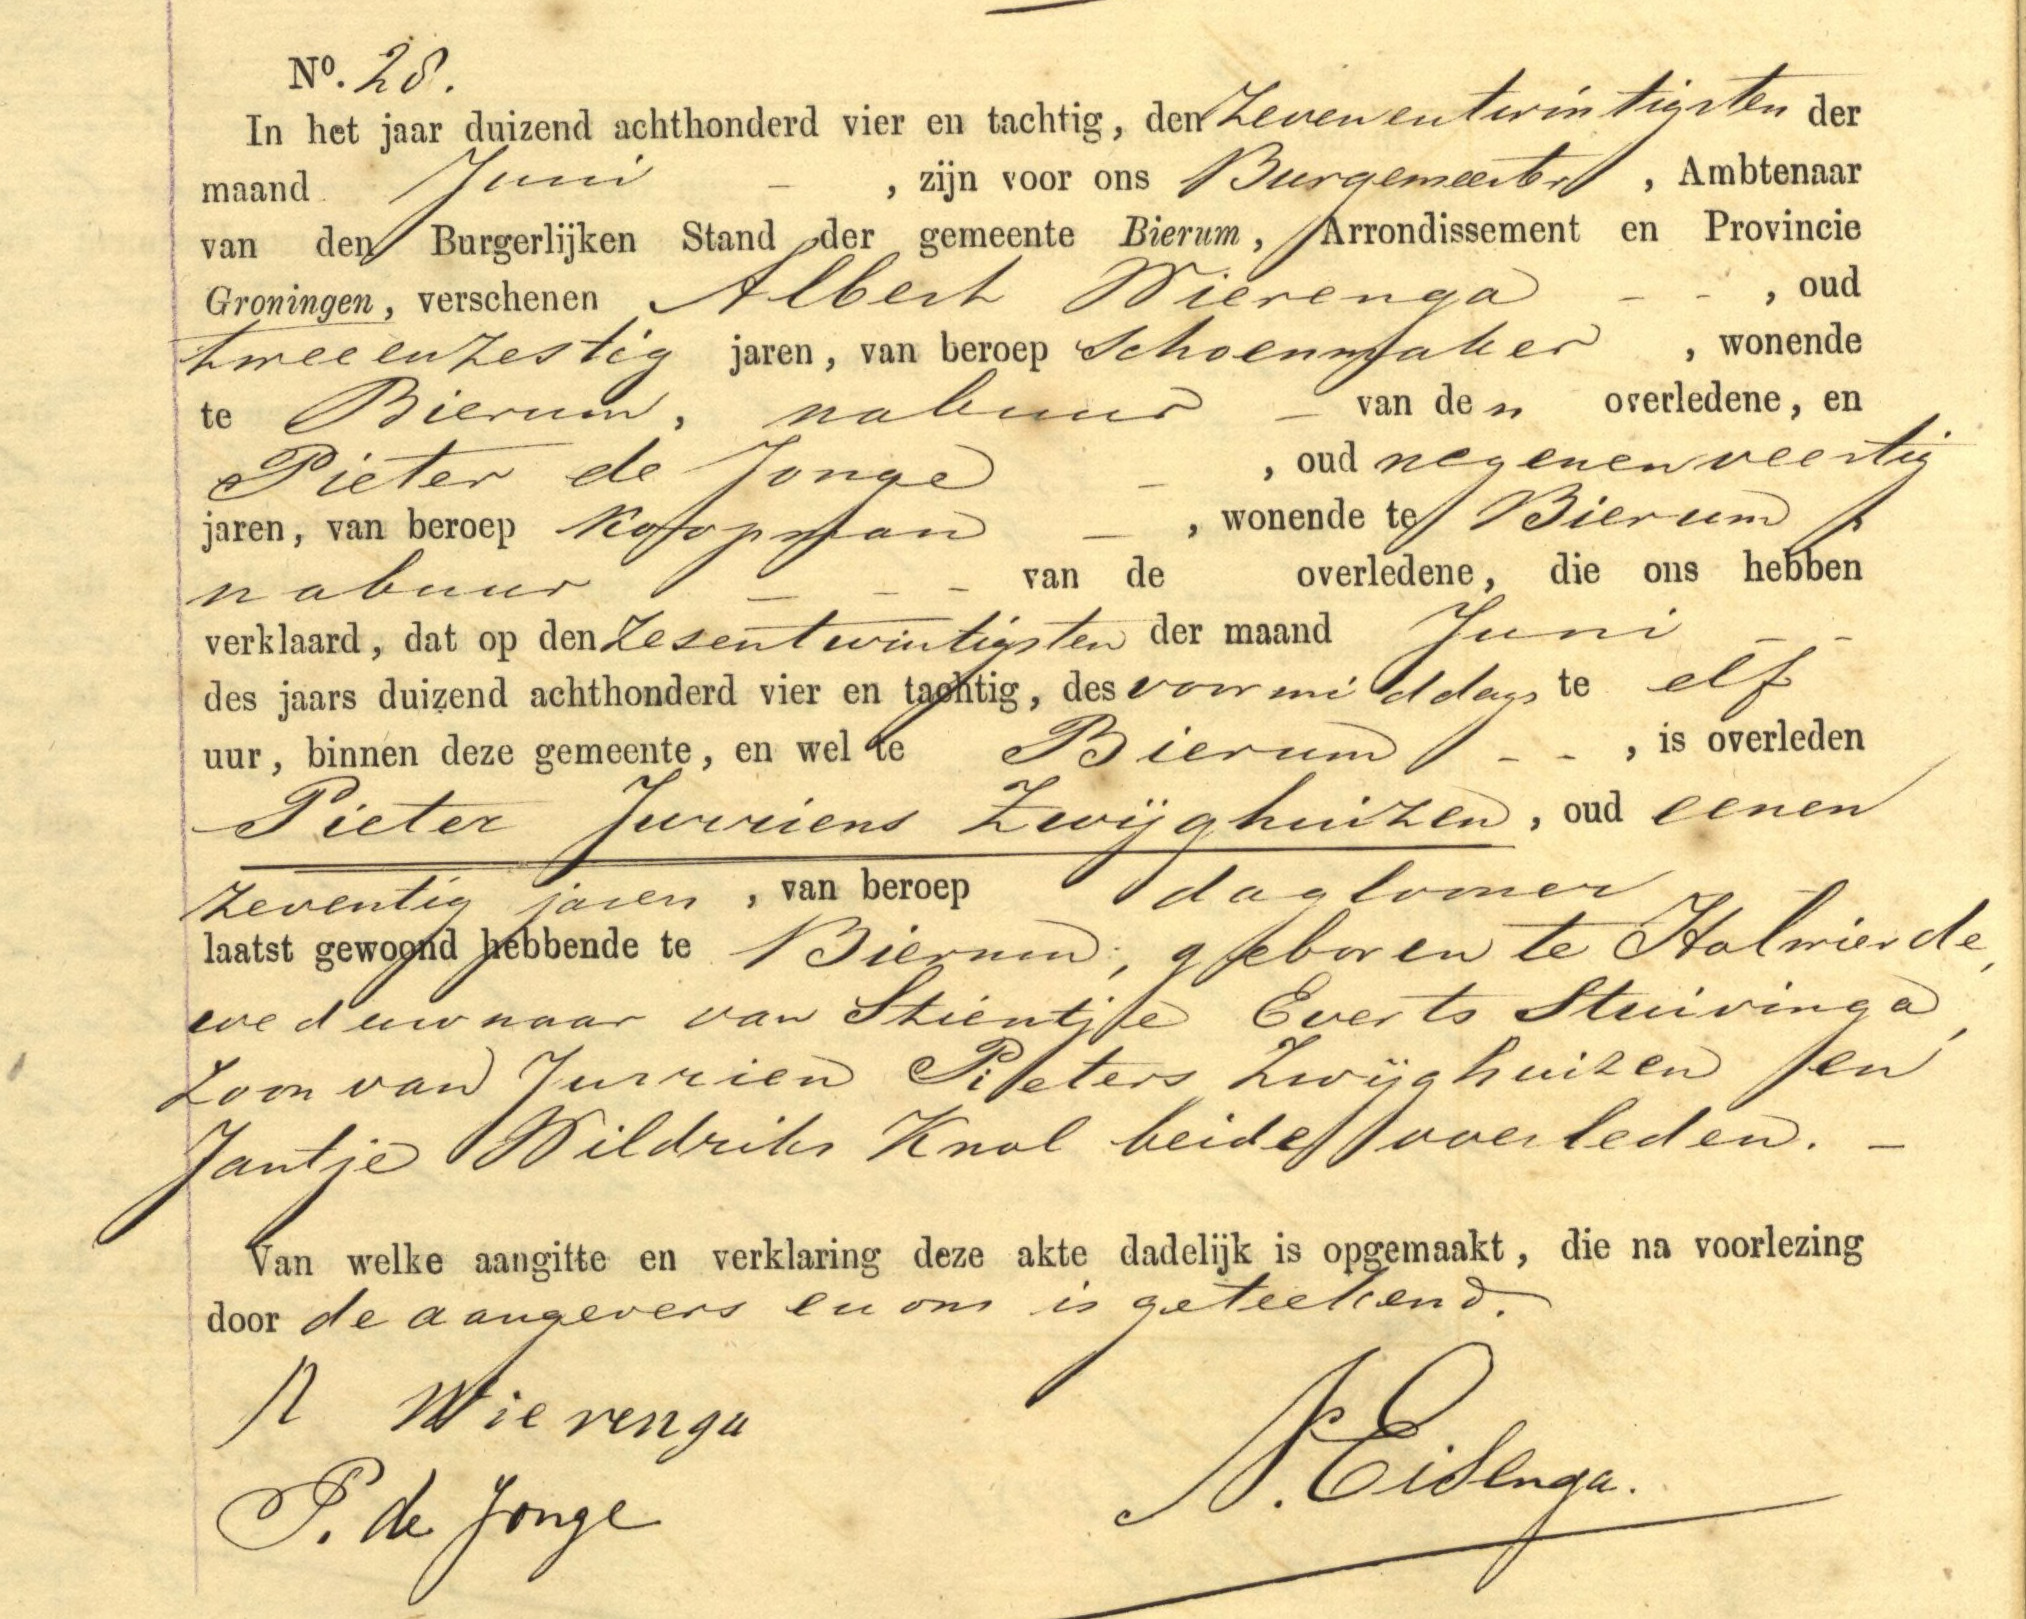 Nº. 28.
In het jaar duizend achthonderd vier en tachtig, den zevenentwintigsten der
maand Juni - , zijn voor ons Burgemeester, Ambtenaar
van den Burgerlijken Stand der gemeente Bierum, Arrondissement en Provincie
Groningen, verschenen Albert Wierenga - - , oud
tweeenzestig jaren, van beroep schoenmaker , wonende
te Bierum, nabuur - van den overledene, en
Pieter de Jonge - , oud negenenveertig
jaren, van beroep koopman - , wonende te Bierum,
nabuur - - - van de overledene, die ons hebben
verklaard, dat op den zesentwintigsten der maand Juni - -
des jaars duizend achthonderd vier en tachtig, des voormiddags te elf
uur, binnen deze gemeente, en wel te Bierum - - , is overleden
Pieter Jurriens Zwijghuizen, oud eenen
zeventig jaren, van beroep daglooner
laatst gewoond hebbende te Bierum, geboren te Holwierde,
weduwnaar van Stientje Everts Stuivinga,
zoon van Jurrien Pieters Zwijghuizen en
Jantje Wildriks Knol beide overleden. -
Van welke aangifte en verklaring deze akte dadelijk is opgemaakt, die na voorlezing
door de aangevers en ons is geteekend.
A Wierenga
P. de Jonge
N. Eisenga.